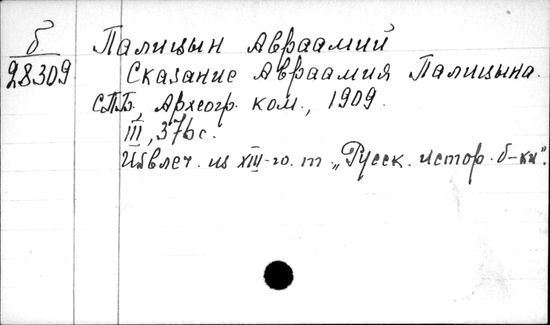 б
28309
Палицын Авраамий
Сказание Авраамия Палицына.
СПБ, Археогр. ком., 1909.
III, 376 с.
Извлеч. из XIII-го. т „Русск. истор. б-ки".